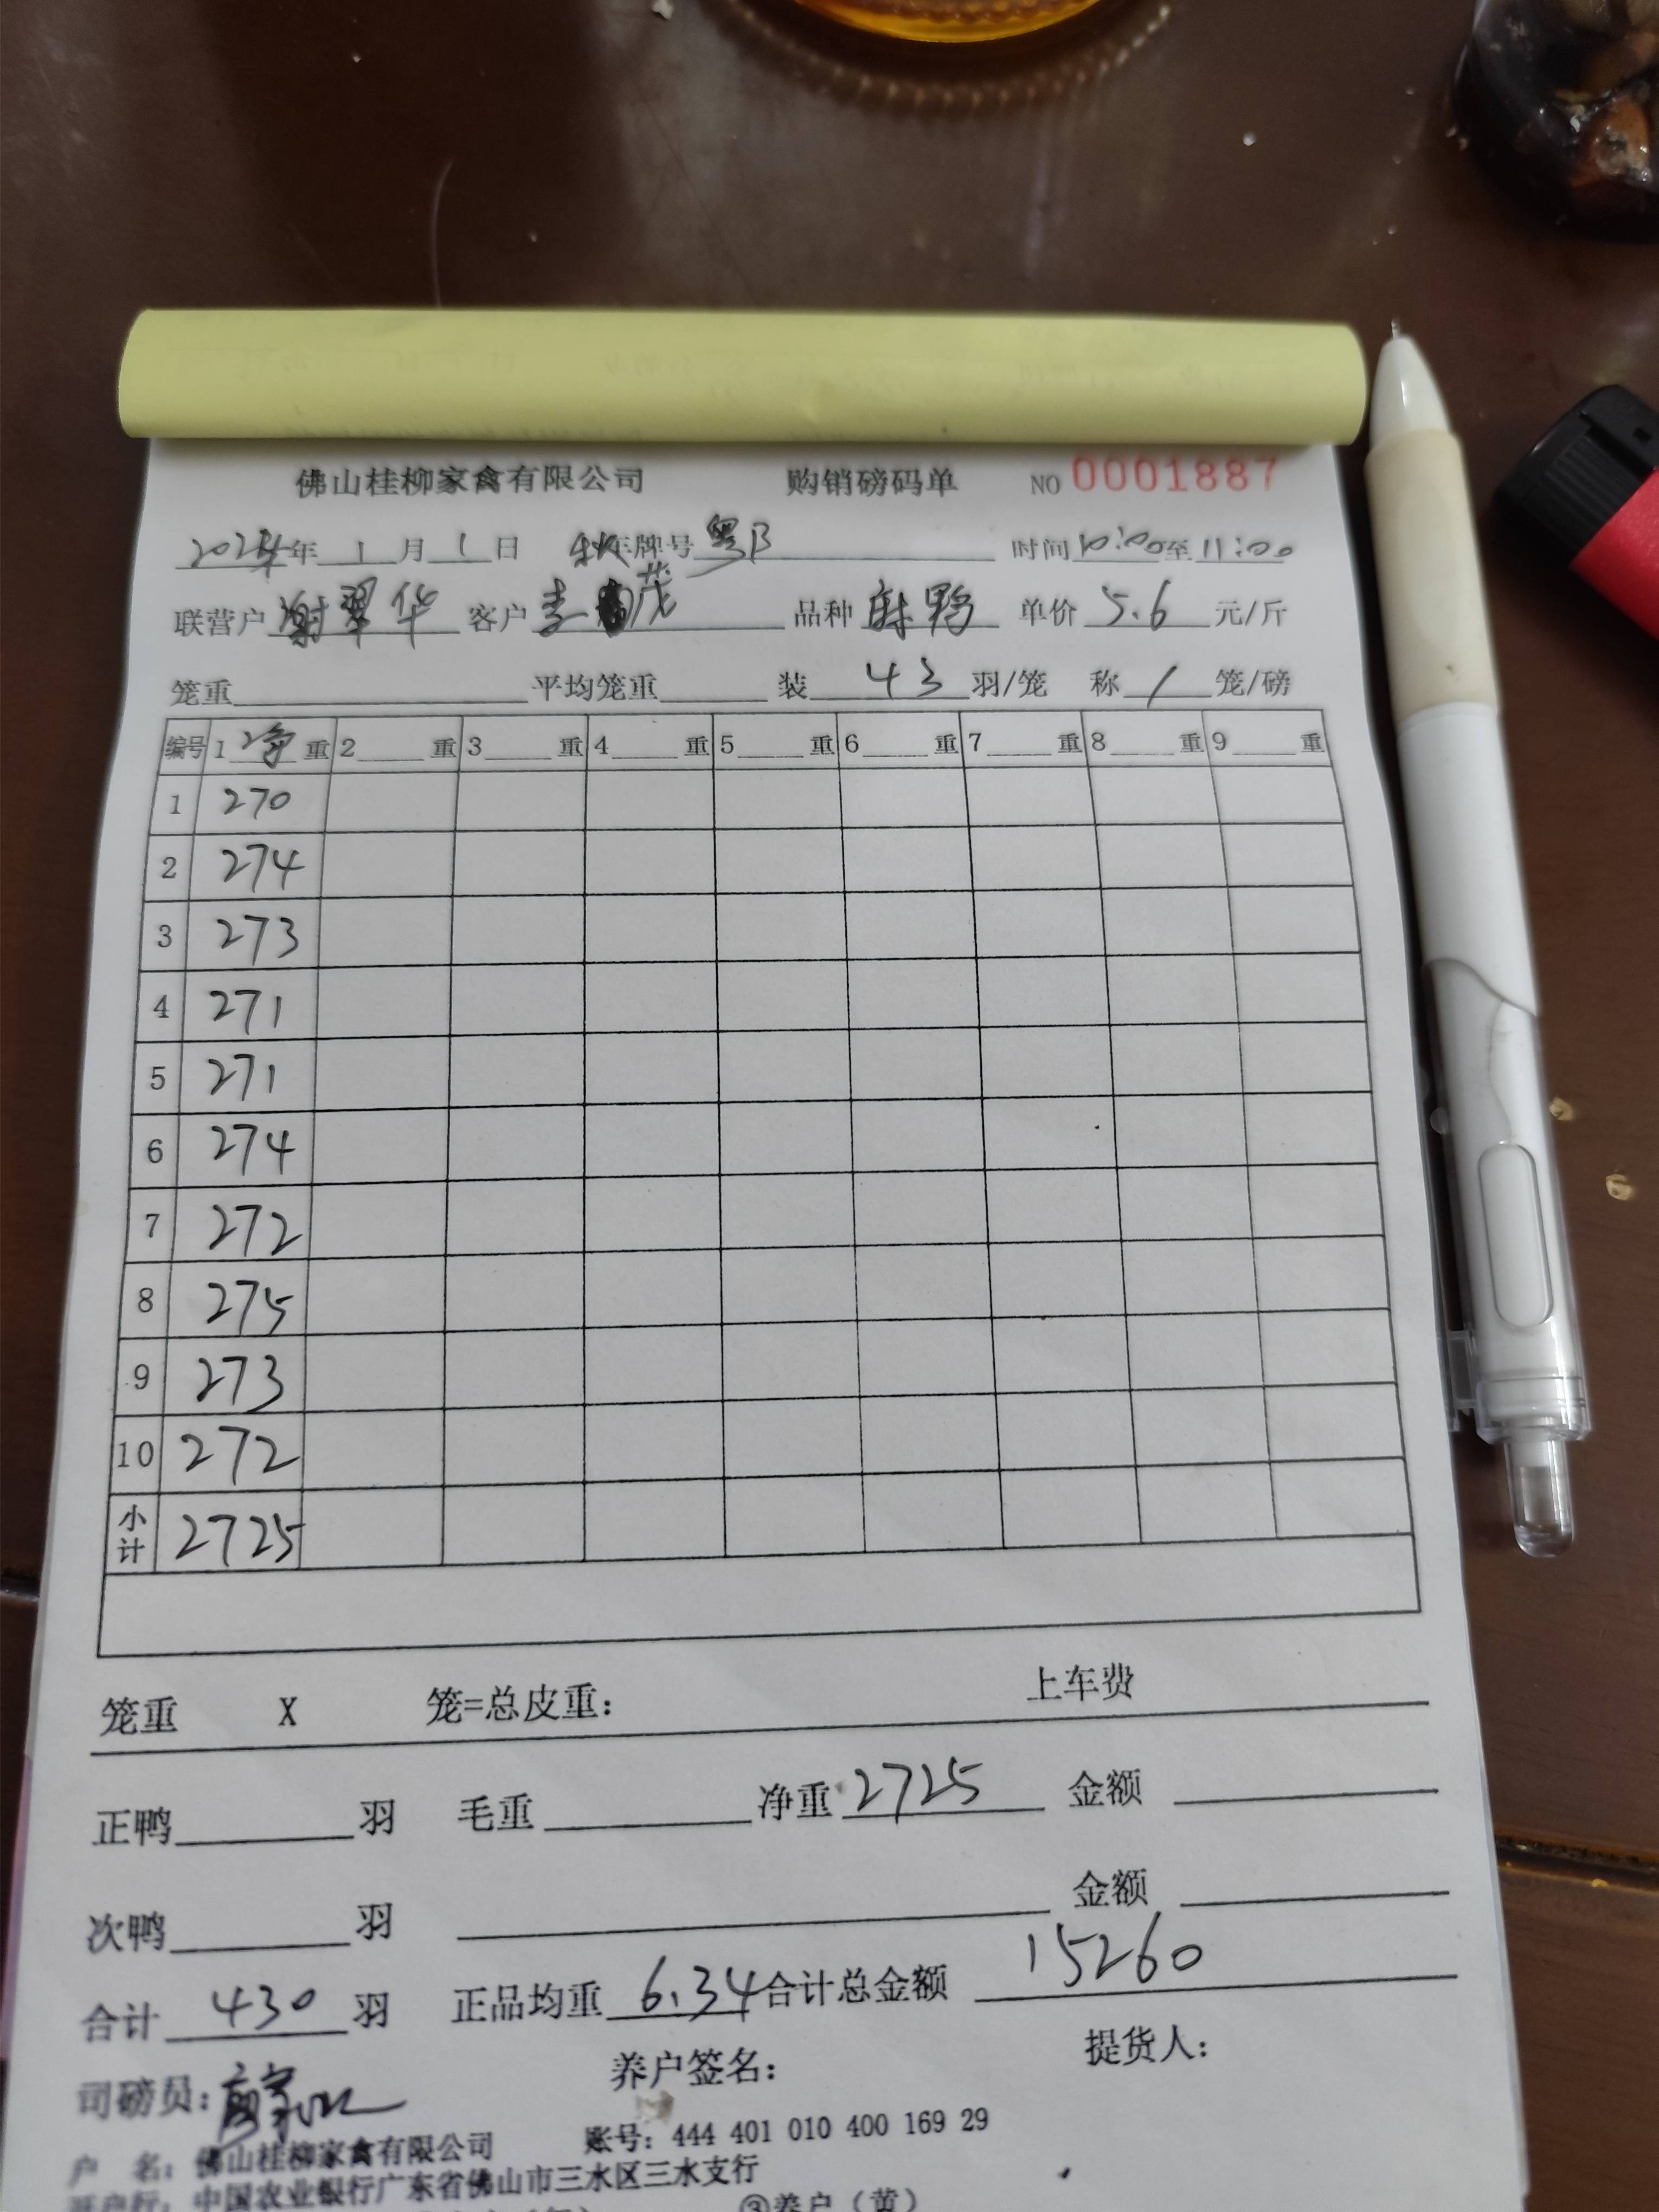 佛山桂柳家禽有限公司 购销磅码单 NO 0001887
年 1 月 1 日 车牌号 粤B 时间 10:00 至 11:00
联营户 谢翠华 客户 李 茂 品种 麻鸭 单价 5.6 元/斤
笼重 平均笼重 装 43 羽/笼 称 1 笼/磅
编号 1 净 重 2 重 3 重 4 重 5 重 6 重 7 重 8 重 9 重
1 270
2 274
3 273
4 271
5 271
6 274
7 272
8 275
9 273
10 272
小计 2725
笼重 X 笼=总皮重: 上车费
正鸭 羽 毛重 净重 2725 金额
次鸭 羽 金额
合计 430 羽 正品均重 6.34 合计总金额 15260
司磅员: 养户签名: 提货人:
户 名: 佛山桂柳家禽有限公司 账号: 444 401 010 400 169 29
开户行: 中国农业银行广东省佛山市三水区三水支行
③养户（黄）